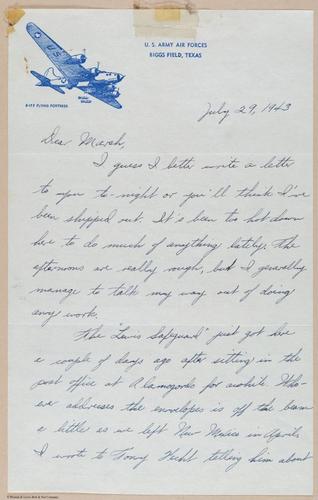 U. S. ARMY AIR FORCES
BIGGS FIELD, TEXAS
B-17F FLYING FORTRESS
July 29, 1943
Dear Marsh,
I guess I better write a letter
to you to-night or you'll think I've
been shipped out. It's been too hot down
here to do much of anything lately. The
afternoons are really rough, but I generally
manage to talk my way out of doing
any work.
The "Lewis Safeguard" just got here
a couple of days ago after sitting in the
post office at Alamogordo for awhile. Who-
ever addresses the envelopes is off the beam
a little as we left New Mexico in April.
I wrote to Tony telling him about